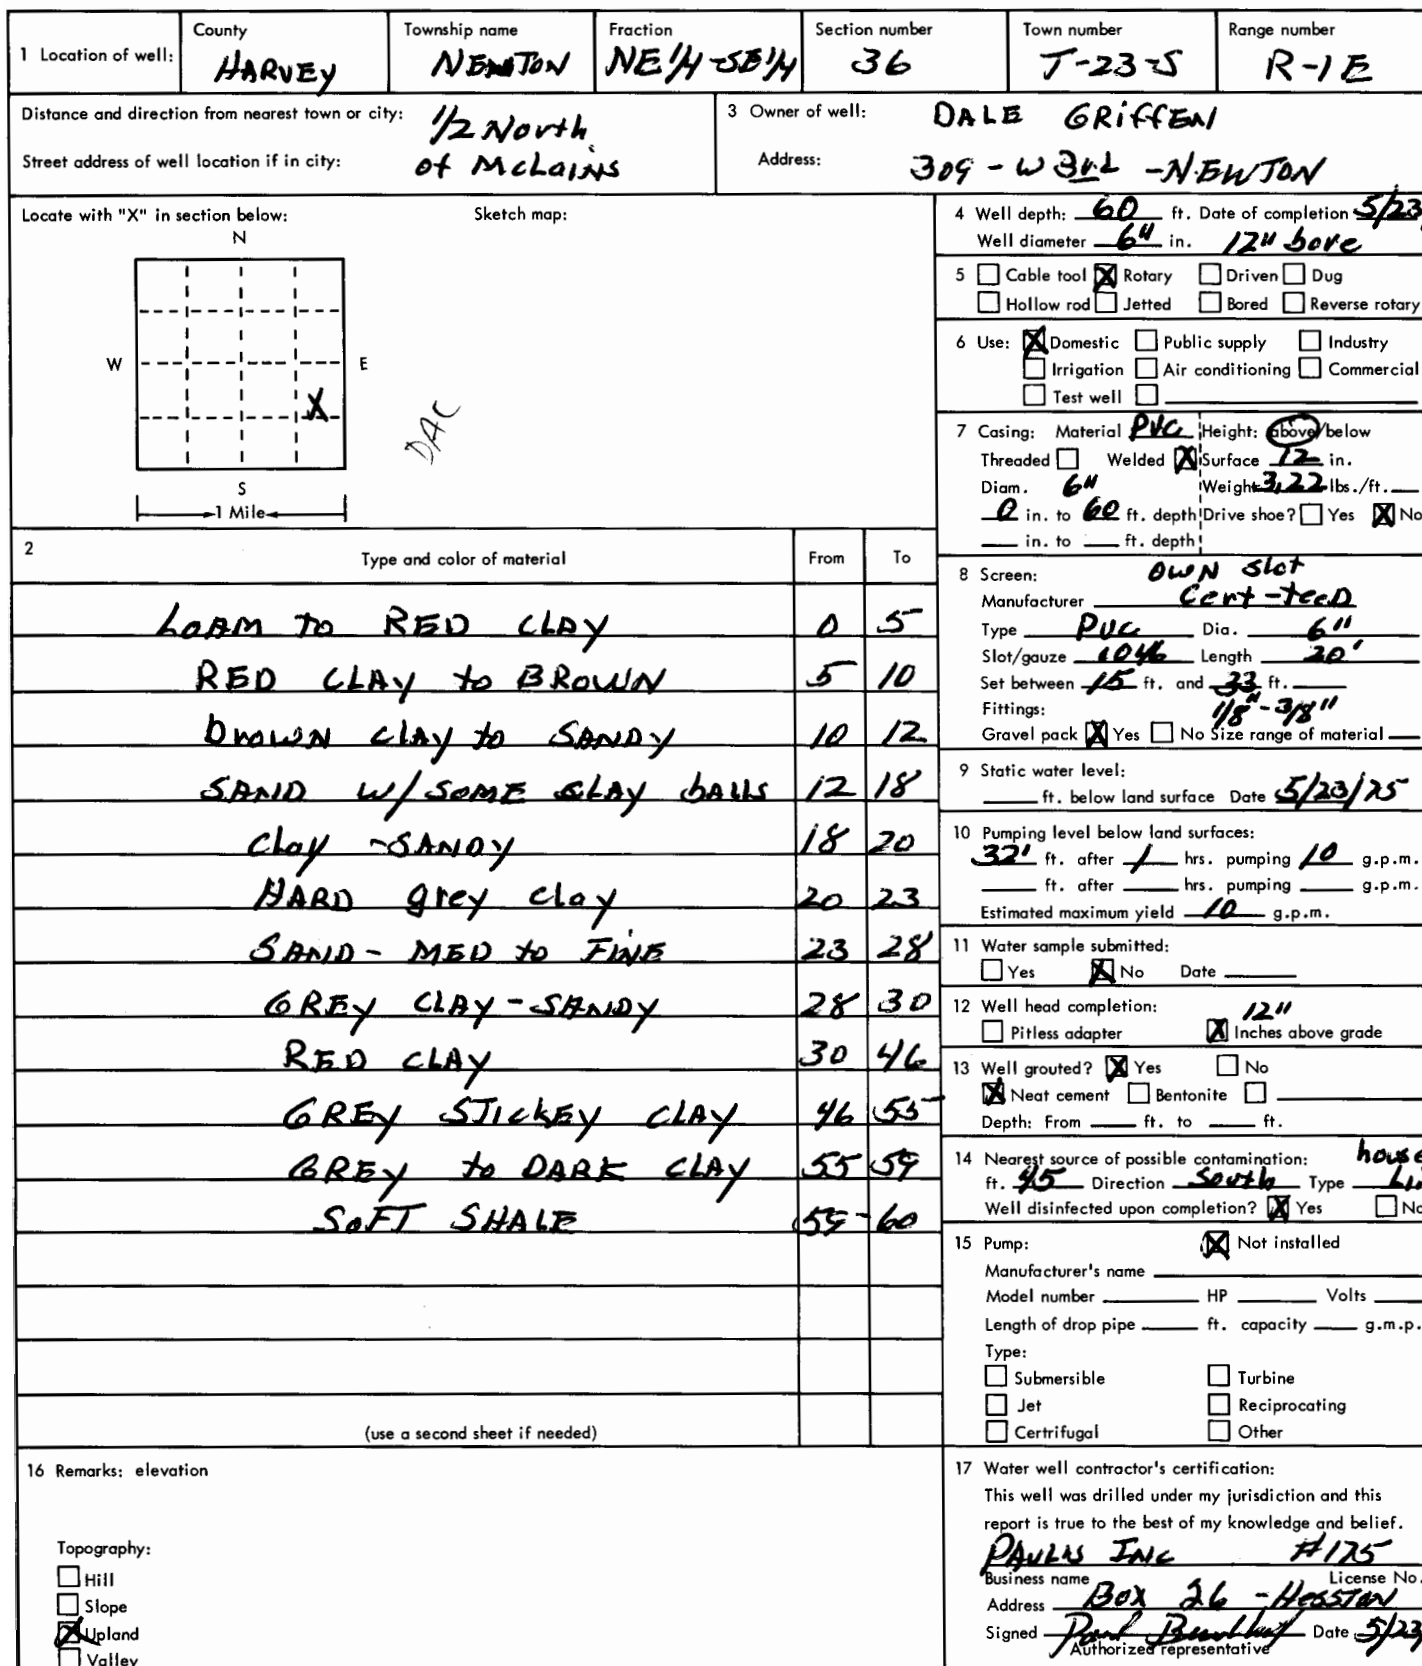 1 Location of well: County HARVEY Township name NEWTON Fraction NE 1/4 - SE 1/4 Section number 36 Town number T-23-S Range number R-1E
Distance and direction from nearest town or city: 1/2 North
Street address of well location if in city: of McLains
3 Owner of well: DALE GRIFFEN
Address: 309 - W 3rd - NEWTON
Locate with "X" in section below: Sketch map:
N
W E
X
S
1 Mile
DAC
2 Type and color of material From To
LOAM TO RED CLAY 0 5
RED CLAY to BROWN 5 10
brown CLAY to SANDY 10 12
SAND W/ SOME CLAY bALLS 12 18
Clay - SANDY 18 20
HARD grey clay 20 23
SAND - MED to FINE 23 28
GREY CLAY - SANDY 28 30
RED CLAY 30 46
GREY STICKEY CLAY 46 55
GREY to DARK CLAY 55 59
SOFT SHALE 59 - 60
(use a second sheet if needed)
4 Well depth: 60 ft. Date of completion 5/23
Well diameter 6" in. 12" bore
5 Cable tool X Rotary Driven Dug
Hollow rod Jetted Bored Reverse rotary
6 Use: X Domestic Public supply Industry
Irrigation Air conditioning Commercial
Test well
7 Casing: Material PVC Height: above/below
Threaded Welded X Surface 12 in.
Diam. 6" Weight 3,22 lbs./ft.
0 in. to 60 ft. depth Drive shoe? Yes X No
in. to ft. depth
8 Screen: OWN Slot
Manufacturer Cert-teeD
Type PVC Dia. 6"
Slot/gauze Length 20'
Set between 15 ft. and 33 ft.
Fittings: 1/8" - 3/8"
Gravel pack X Yes No Size range of material
9 Static water level:
ft. below land surface Date 5/23/75
10 Pumping level below land surfaces:
32' ft. after 1 hrs. pumping 10 g.p.m.
ft. after hrs. pumping g.p.m.
Estimated maximum yield 10 g.p.m.
11 Water sample submitted:
Yes X No Date
12 Well head completion: 12"
Pitless adapter X Inches above grade
13 Well grouted? X Yes No
X Neat cement Bentonite
Depth: From ft. to ft.
14 Nearest source of possible contamination: house
ft. 45 Direction South Type
Well disinfected upon completion? X Yes No
15 Pump: X Not installed
Manufacturer's name
Model number HP Volts
Length of drop pipe ft. capacity g.m.p.
Type:
Submersible Turbine
Jet Reciprocating
Certrifugal Other
16 Remarks: elevation
Topography:
Hill
Slope
X Upland
Valley
17 Water well contractor's certification:
This well was drilled under my jurisdiction and this
report is true to the best of my knowledge and belief.
PAULS INC #175
Business name License No.
Address BOX 26 - HESSTON
Signed Date 5/23
Authorized representative